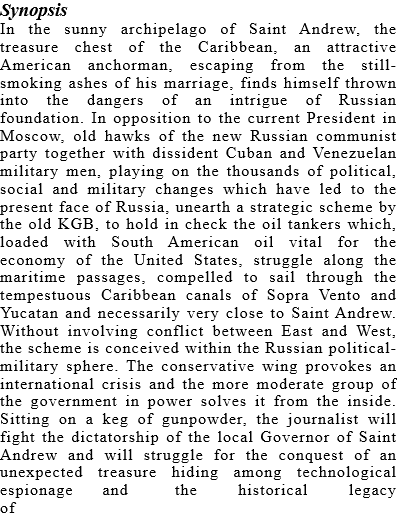 Synopsis
In the sunny archipelago of Saint Andrew, the
treasure chest of the Caribbean, an attractive
American anchorman, escaping from the still-
smoking ashes of his marriage, finds himself thrown
into the dangers of an intrigue of Russian
foundation. In opposition to the current President in
Moscow, old hawks of the new Russian communist
party together with dissident Cuban and Venezuelan
military men, playing on the thousands of political,
social and military changes which have led to the
present face of Russia, unearth a strategic scheme by
the old KGB, to hold in check the oil tankers which,
loaded with South American oil vital for the
economy of the United States, struggle along the
maritime passages, compelled to sail through the
tempestuous Caribbean canals of Sopra Vento and
Yucatan and necessarily very close to Saint Andrew.
Without involving conflict between East and West,
the scheme is conceived within the Russian political-
military sphere. The conservative wing provokes an
international crisis and the more moderate group of
the government in power solves it from the inside.
Sitting on a keg of gunpowder, the journalist will
fight the dictatorship of the local Governor of Saint
Andrew and will struggle for the conquest of an
unexpected treasure hiding among technological
espionage and the historical legacy
of